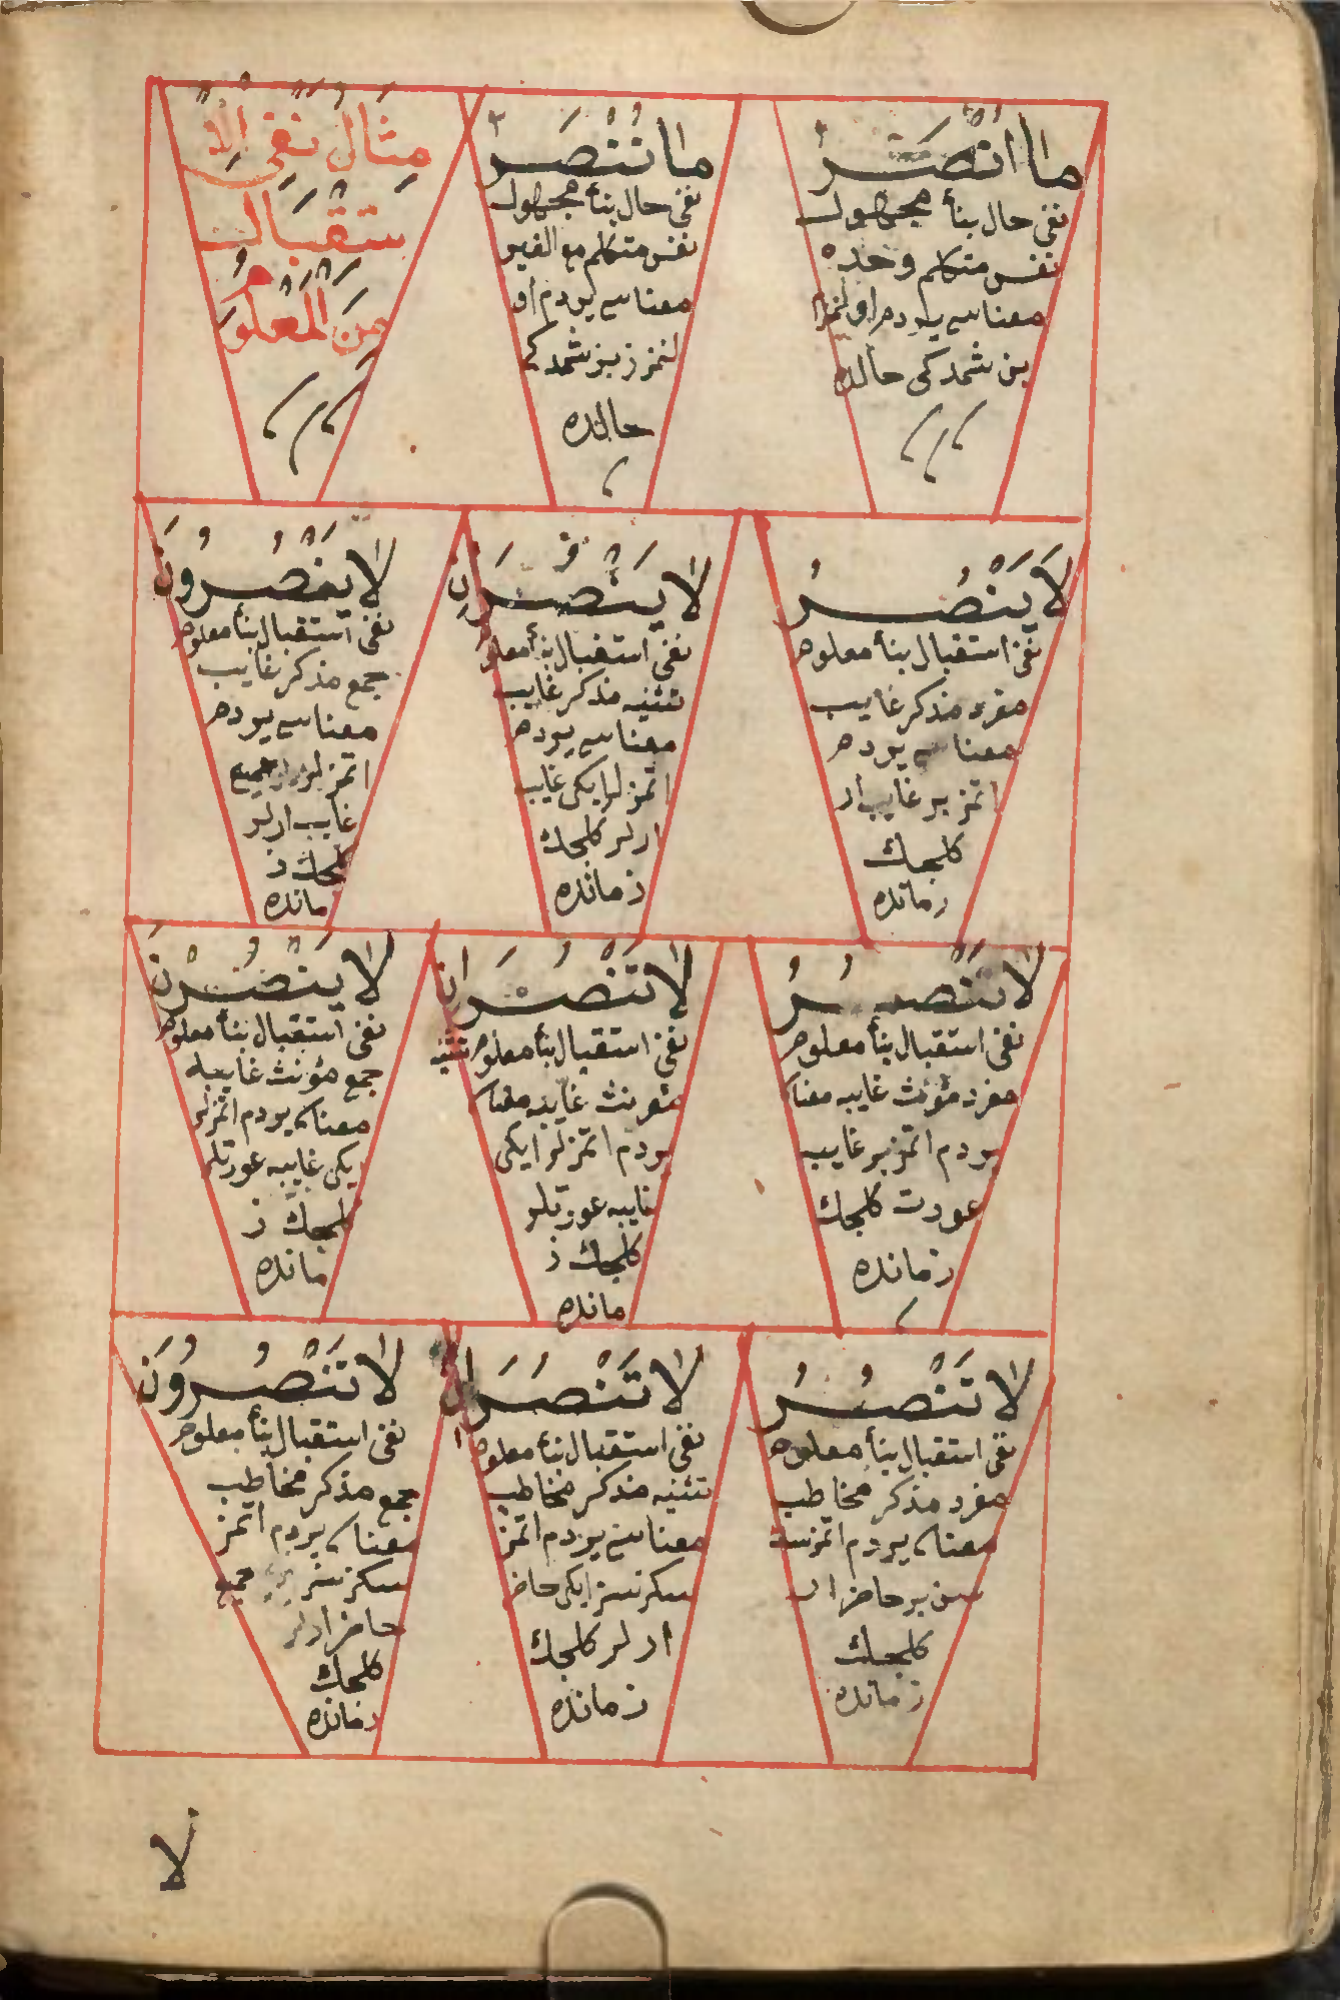 ما انصر
نفى حال بنأ مجهول
نفس متكلم وحده
معناسى يردم اولنمزم
بن شمدكى حالده
ما ننصر
نفى حال بنأ مجهول
نفس متكلم مع الغير
معناسى يردم او
لنمزز بز شمدكى
حالده
مِثَالُ نَفِى الْاِ
سْتِقْبَالِ
مِنَ الْمَعْلُومِ
لَا يَنْصُرُ
نفى استقبال بنأ معلوم
مفرد مذكر غايب
معناسى يردم
اتمز بر غايب ار
كلجك
زمانده
لا ينصران
نفى استقبال بنأ معلوم
تثنيه مذكر غايب
معناسى يردم
اتمزلر ايكى غايب
ارلر كلجك
زمانده
لا ينصرون
نفى استقبال بنأ معلوم
جمع مذكر غايب
معناسى يردم
اتمزلر جميع
غايب ارلر
كلجك ز
مانده
لا تنصر
نفى استقبال بنأ معلوم
مفرد مؤنث غايبه معناسى
يردم اتمز بر غايب
عورت كلجك
زمانده
لا تنصران
نفى استقبال بنأ معلوم تثنيه
مؤنث غايبه معناسى
يردم اتمزلر ايكى
غايبه عورتلر
كلجك ز
مانده
لا ينصرن
نفى استقبال بنأ معلوم
جمع مؤنث غايبه
معناسى يردم اتمزلر
ايكى غايبه عورتلر
كلجك ز
مانده
لَا تَنْصُرُ
نفى استقبال بنأ معلوم
مفرد مذكر مخاطب
معناسى يردم اتمزسك
سن بر حاضر ار
كلجك
زمانده
لَا تَنْصُرَانِ
نفى استقبال بنأ معلوم
تثنيه مذكر مخاطب
معناسى يردم اتمز
سكز سز ايكى حاضر
ارلر كلجك
زمانده
لَا تَنْصُرُونَ
نفى استقبال بنأ معلوم
جمع مذكر مخاطب
معناسى يردم اتمز
سكز سز جميع
حاضر ارلر
كلجك
زمانده
لا